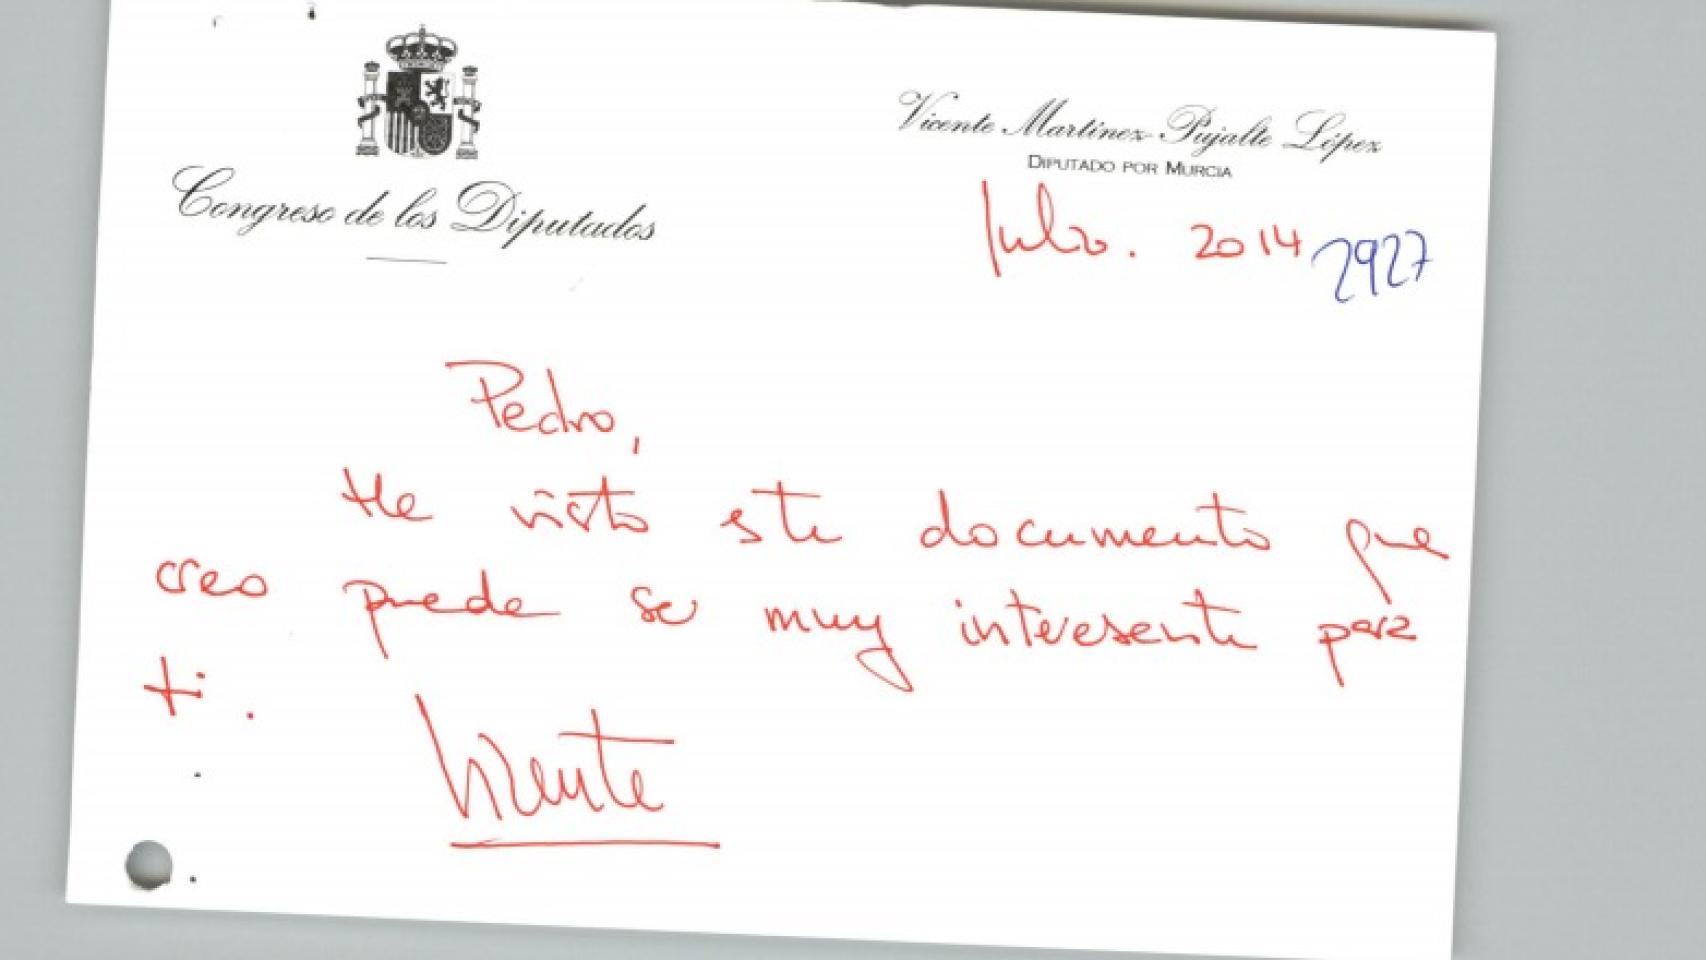 Congreso de los Diputados
Vicente Martínez-Pujalte López
DIPUTADO POR MURCIA
Julio. 2014 2927
Pedro,
He visto este documento que
creo puede ser muy interesante para
ti.
Vicente